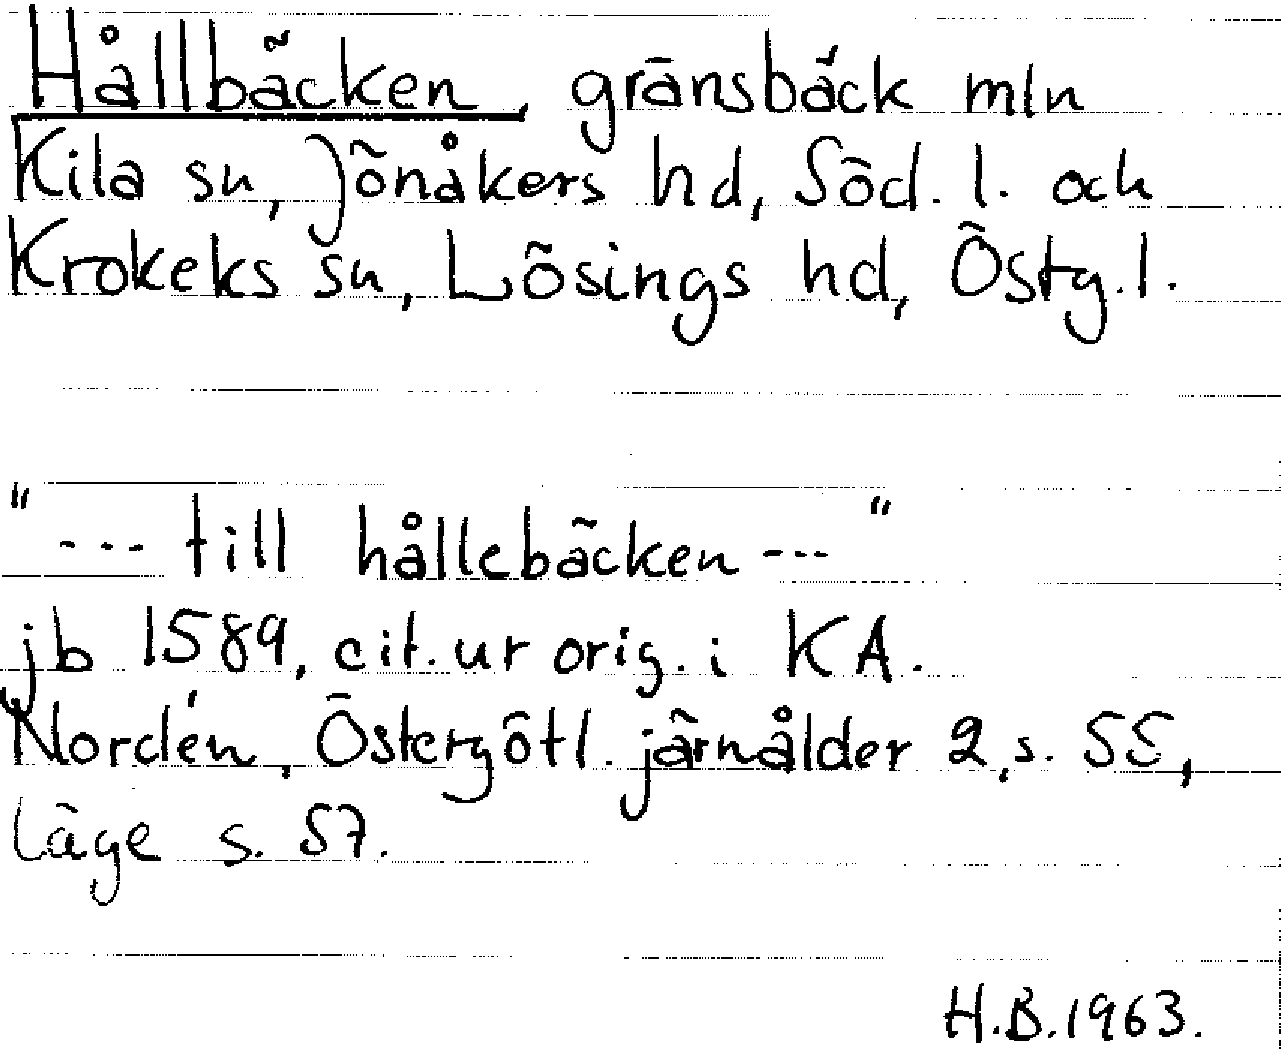 Hållbäcken, gränsbäck mln
Kila sn, Jönåkers hd, Söd. l. och
Krokeks sn, Lösings hd, Östg. l.
"--- till hållebäcken ---"
jb 1589, cit. ur orig. i KA.
Nordén, Östergötl. järnålder 2, s. 55,
läge s. 57.
H.B. 1963.